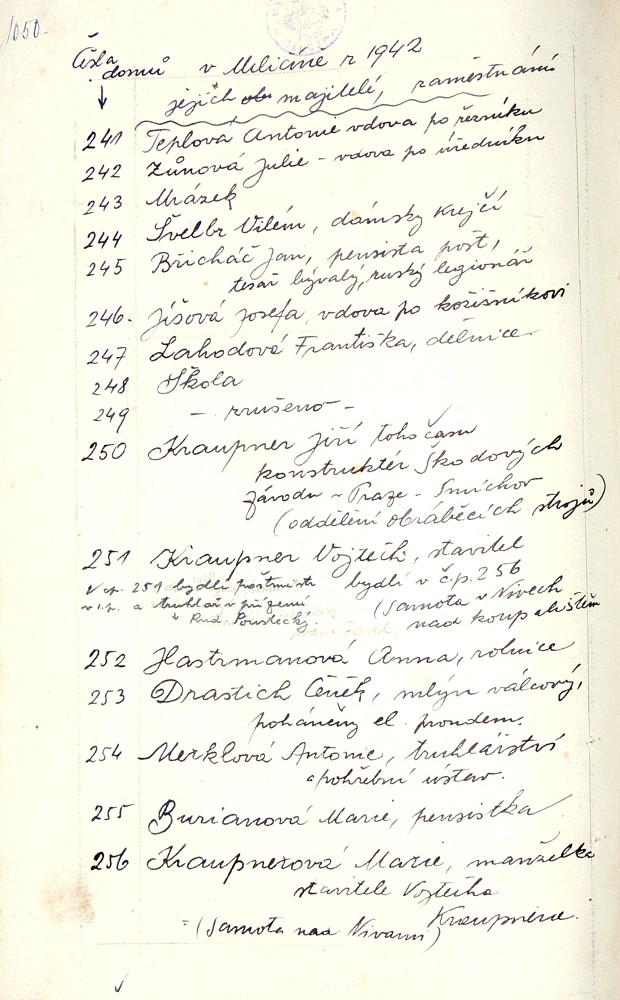 1050.
Čísla
domů v Miličíně r 1942
jejich majitelé, zaměstnání
241 Teplová Antonie vdova po řezníku
242 Zůnová Julie - vdova po úředníku
243 Mrázek
244 Švelbr Vilém, dámský krejčí
245 Břicháč Jan, pensista pošt,
tesař bývalý, ruský legionář
246. Jíšová Josefa, vdova po kožišníkovi
247 Lahodová Františka, dělnice
248 Škola
249 - zrušeno -
250 Kraupner Jiří toho času
konstruktér Škodových
závodů v Praze - Smíchov
(oddělení obráběcích strojů)
251 Kraupner Vojtěch, stavitel
bydlí v č.p. 256
(samota v Nivech
nad koupalištěm
V čp. 251 bydlí poštmistr
v I.p. a truhlář v přízemí
Rud. Poustecký.
252 Hastrmanová Anna, rolnice
253 Drastich Čeněk, mlýn válcový,
poháněný el. proudem.
254 Merklová Antonie, truhlářství
a pohřební ústav.
255 Burianová Marie, pensistka
256 Kraupnerová Marie, manželka
stavitele Vojtěcha
Kraupnera.
(Samota nad Nivami)